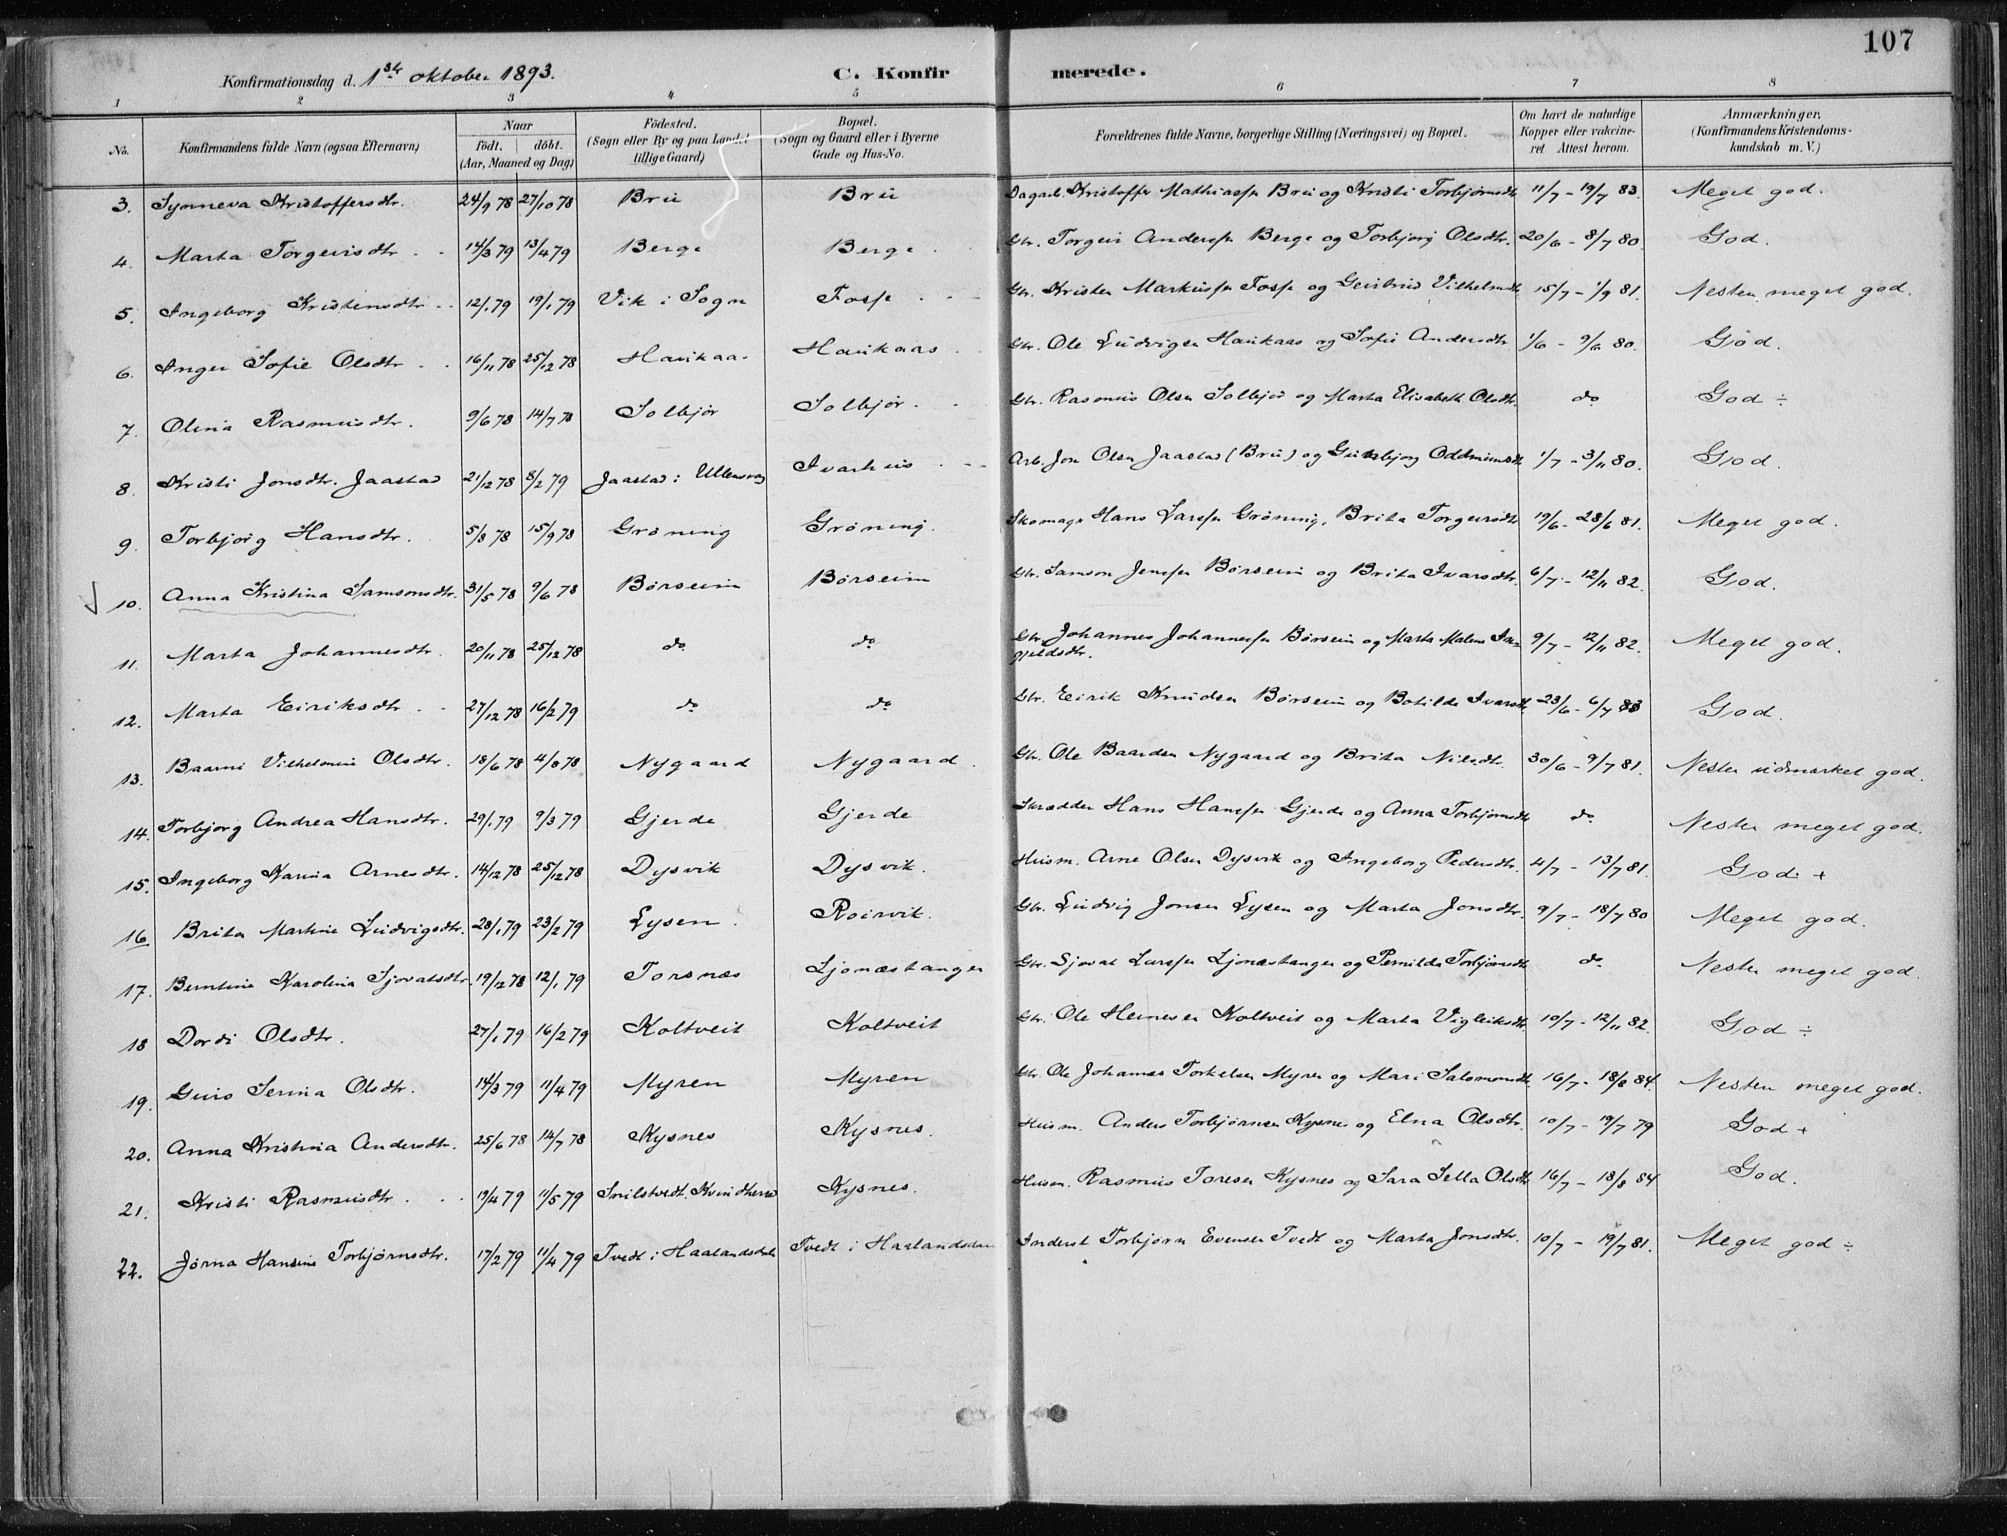 107
Konfirmationsdag d. 1ste oktober 1893. C. Konfirmerede.
1 2 3 4 5 6 7 8
No. Konfirmandens fulde Navn (ogsaa Efternavn) Naar födt. döbt. (Aar, Maaned og Dag) Födested. (Sogn eller By og paa Landet tillige Gaard) Bopæl. (Sogn og Gaard eller i Byerne Gade og Hus-No. Forældrenes fulde Navne, borgerlige Stilling (Næringsvei) og Bopæl. Om havt de naturlige Kopper eller vakcineret. Attest herom. Anmærkninger, (Konfirmandens Kristendomskundskab m. V.)
3. Synneva Kristoffersdtr. 24/9 78 27/10 78 Bru Bru Dagarb. Kristoffer Mathiassen Bru og Kristi Torbjørnsdtr 11/7 - 19/7 83. Meget god.
4. Marta Torgeirsdtr 14/3 79 13/4 79 Berge Berge Gbr. Torgeir Anderssen Berge og Torbjorg Olsdtr. 20/6 - 8/7 80. God.
5. Ingeborg Kristensdtr 12/1 79 19/1 79 Vik i Sogn Fosse Gbr. Kristen Markussen Fosse og Vilhelmdtr 15/7 - 1/9 81. Nesten meget god.
6. Inger Sofie Olsdtr 16/11 78 25/12 78 Haukaas Haukaas Gbr. Ole Ludvigsen Haukaas og Sofie Andersdtr 1/6 - 9/6 80. God.
7. Olina Rasmusdtr. 9/6 78 14/7 78 Solbjør Solbjør Gbr. Rasmus Olsen Solbjør og Marta Elisabeth Olsdtr. do God ÷
8. Kristi Jonsdtr. Jaastad 21/12 78 8/2 79 Jaastad i Ullensvang Ivarhus Arb. Jon Olsen Jaastad (Bru) og Oddmundsdtr 1/7 - 3/11 80. God.
9. Torbjorg Hansdtr. 5/8 78 15/9 78 Grøning Grøning Skomager Hans Larssen Grøning, Brita Torgeirsdtr 19/6 - 28/6 81. Meget god.
10. Anna Kristina Samsonsdtr. 31/5 78 9/6 78 Børseim Børseim Gbr. Samson Jenssen Børseim og Brita Ivarsdtr. 6/7 - 12/11 82. God.
11. Marta Johannesdtr. 20/11 78 25/12 78 do do Gbr. Johannes Johannessen Børseim og Marta Malene 9/7 - 12/11 82. Meget god.
12. Marta Eiriksdtr 27/12 78 16/2 79 do do Gbr. Eirik Knudsen Børseim og Botilda Ivarsdtr 23/6 - 6/7 83 God.
13. Vilhelmine Olsdtr. 18/6 78 4/8 78 Nygaard Nygaard Gbr. Ole Baardsen Nygaard og Brita Nilsdtr. 30/6 - 9/7 81. Nesten udmærket god.
14. Torbjorg Andrea Hansdtr. 29/1 79 9/3 79 Gjerde Gjerde Skrædder Hans Hanssen Gjerde og Anna Torbjørnsdtr do Nesten meget god.
15. Ingeborg Karina Arnesdtr. 14/12 78 25/12 78 Dysvik Dysvik. Husm. Arne Olsen Dysvik og Ingeborg Pedersdtr. 4/7 - 13/7 81. God +
16 Brita Martine Ludvigsdtr. 28/1 79 23/2 79 Lysen. Roirvik. Gbr. Ludvig Jonsen Lysen og Marta Jonsdtr. 9/7 - 18/7 80 Meget god.
17. Berntine Karolina Sjovatsdtr. 19/12 78 12/1 79 Torsnes Ljonæstangen Gbr. Sjovat Larssen Ljonæstangen og Pernilde Torbjørnsdtr do Nesten meget god.
18 Dordi Olsdtr. 27/1 79 16/2 79 Koltveit Koltveit Gbr. Ole Koltveit og Marta Vigleiksdtr 10/7 - 12/11 82. God ÷
19. Guro Serina Olsdtr. 14/3 79 11/4 79 Myren Myren Gbr. Ole Johannes Torkelsen Myren og Mari Salomonsdtr. 16/7 - 18/8 84. Nesten meget god.
20. Anna Kristina Andersdtr. 25/6 78 14/7 78 Kysnes Kysnes. Husm. Anders Torbjørnsen Kysnes og Elna Olsdtr. 10/7 - 19/7 79 God +
21. Kristi Rasmusdtr. 19/4 79 11/5 79 Snilstvedt. Kvindherred Kysnes. Husm. Rasmus Toresen Kysnes og Sara Sella Olsdtr 16/7 - 18/8 84 God.
22. Jørna Hansine Torbjørnsdtr. 17/2 79 11/4 79 Tvedt i Haalandsdalen Tvedt i Haalandsdalen Inderst Torbjørn Evensen Tvedt og Marta Jonsdtr. 10/7 - 19/7 81. Meget god ÷